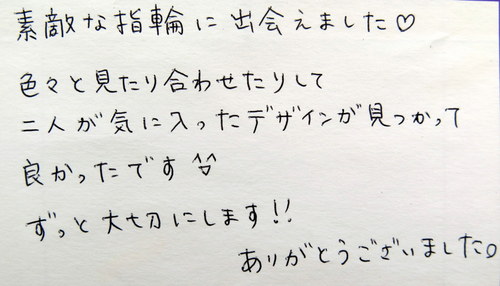 素敵な指輪に出会えました♡
色々と見たり合わせたりして
二人が気に入ったデザインが見つかって
良かったです
ずっと大切にします!!
ありがとうございました。